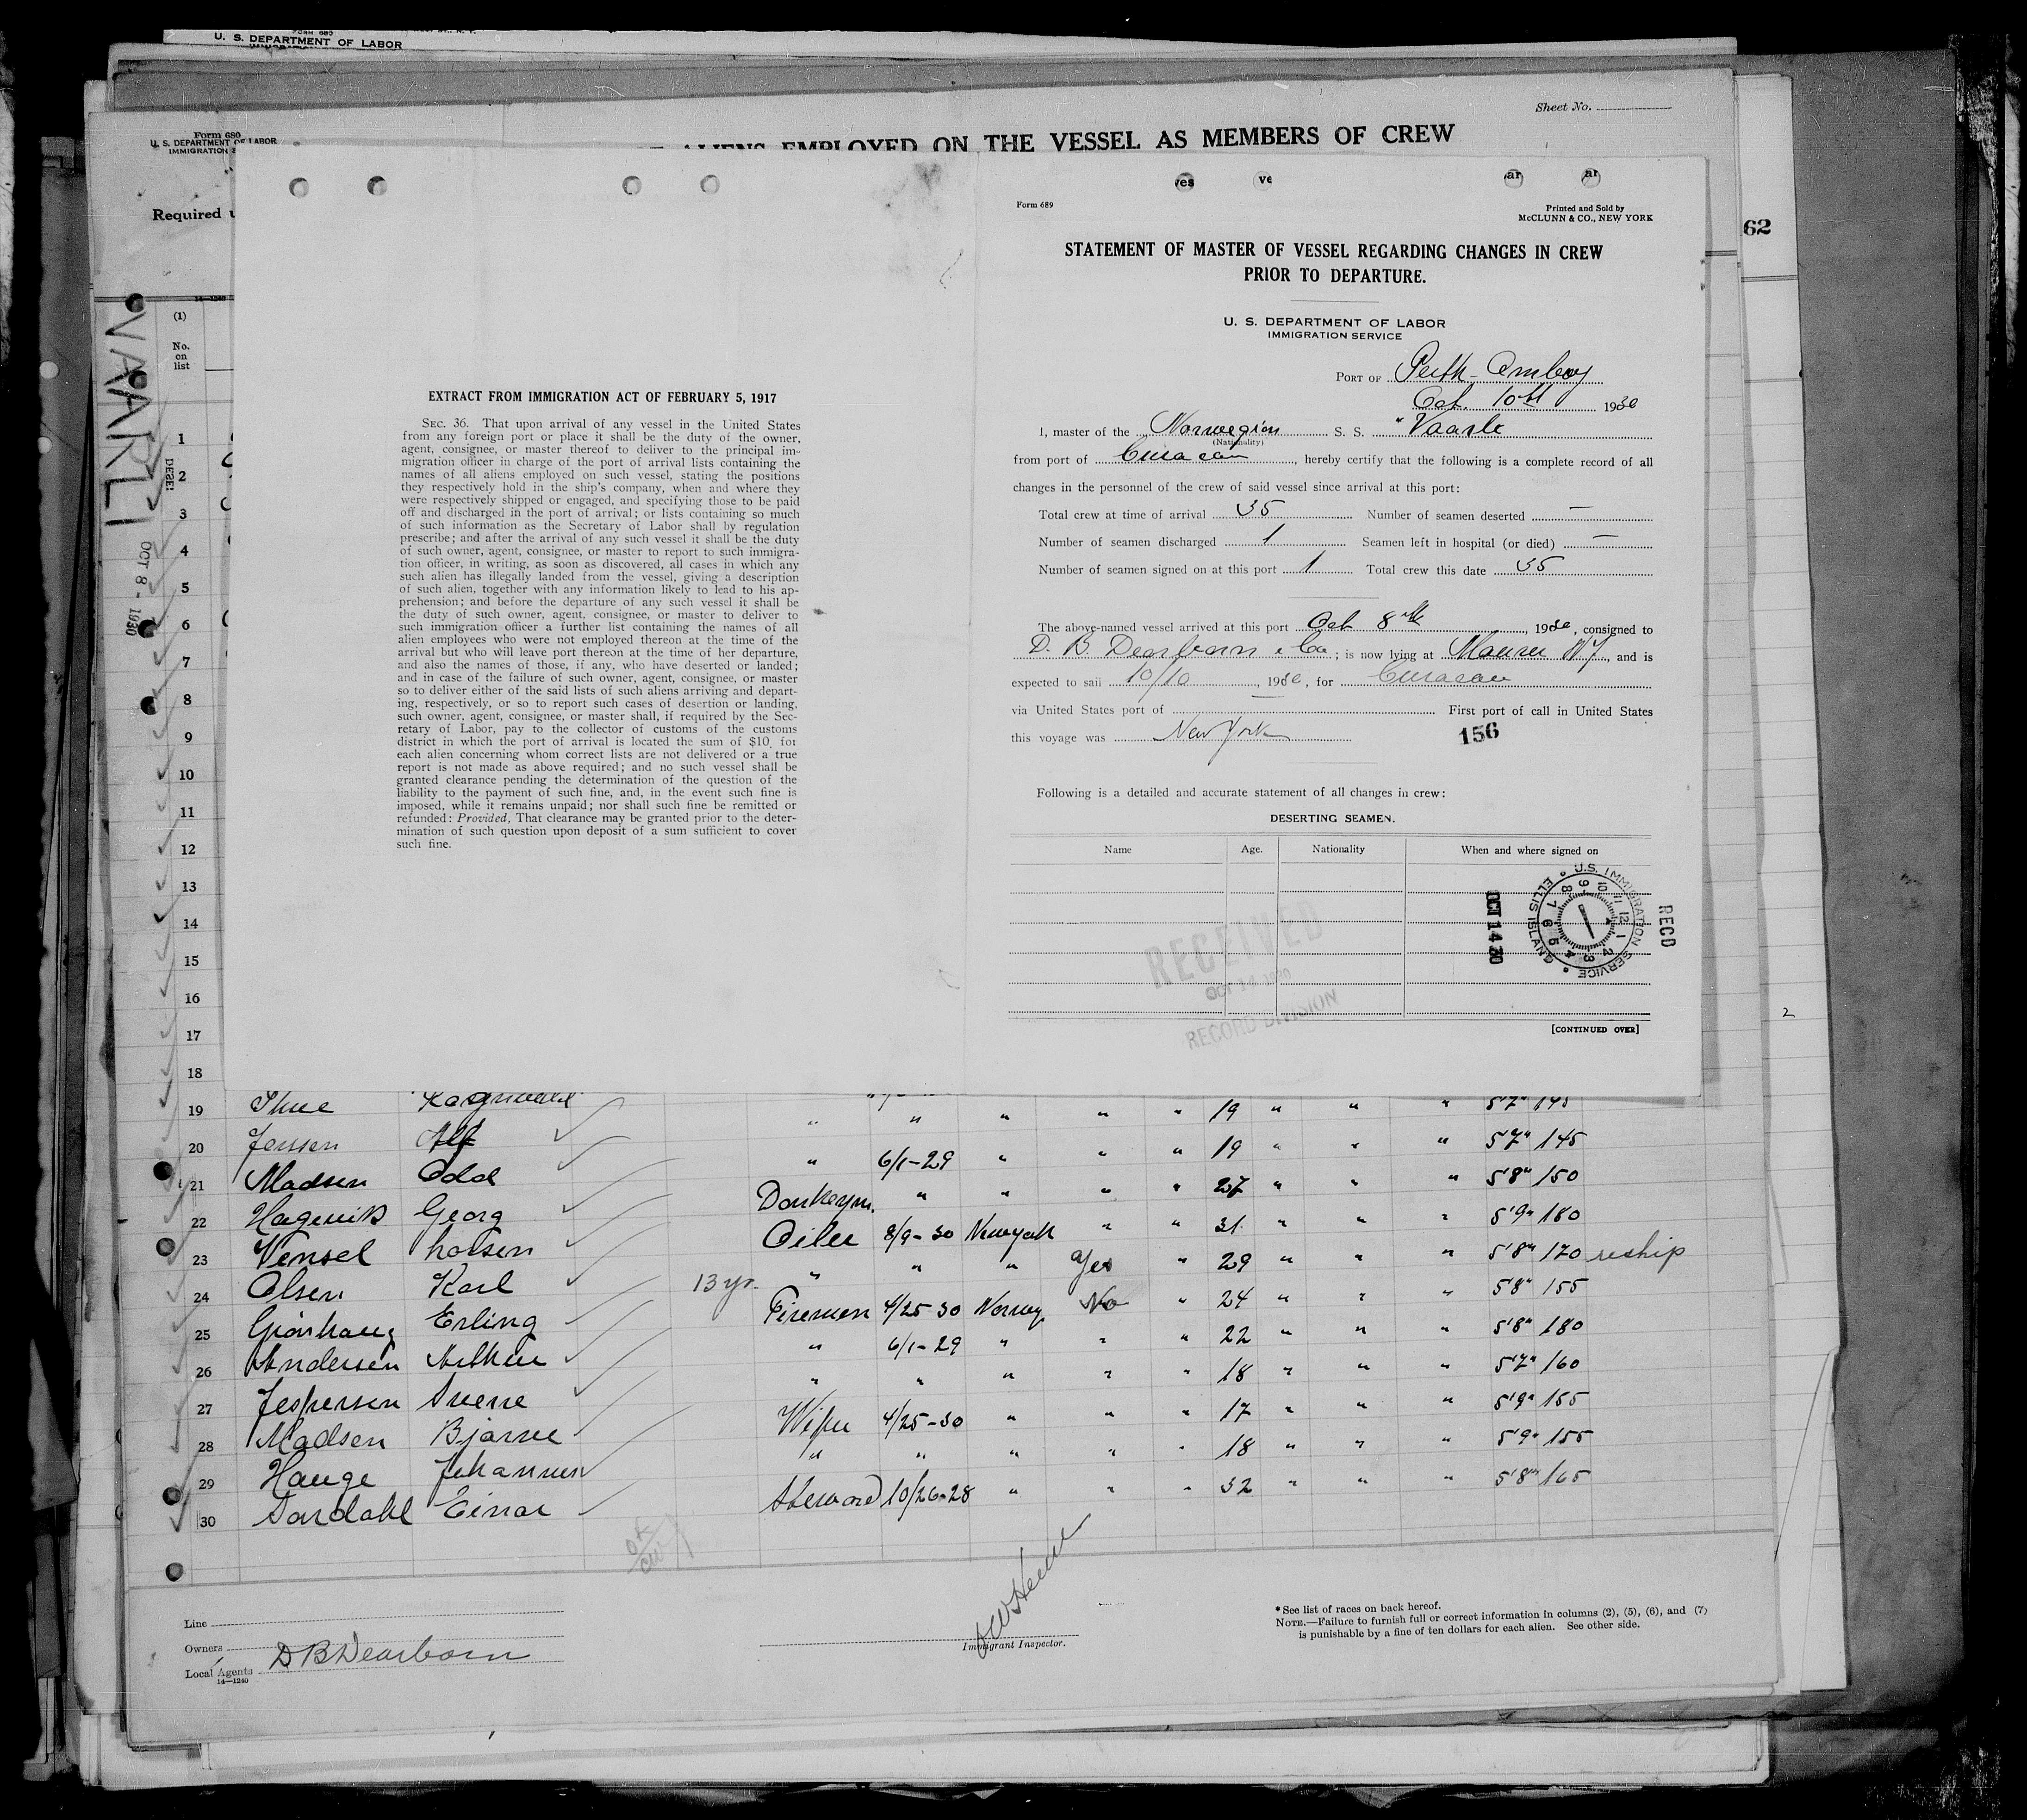 FORM 680
U. S. DEPARTMENT OF LABOR
Sheet No.
Form 680
U. S. DEPARTMENT OF LABOR
IMMIGRATION
ALIENS EMPLOYED ON THE VESSEL AS MEMBERS OF CREW
Required
62
14-1240
(1)
No.
on
list
VAARLI
DESE:
OCT 8 - 1930
1
2
3
4
5
6
7
8
9
10
11
12
13
14
15
16
17
18
EXTRACT FROM IMMIGRATION ACT OF FEBRUARY 5, 1917
SEC. 36. That upon arrival of any vessel in the United States
from any foreign port or place it shall be the duty of the owner,
agent, consignee, or master thereof to deliver to the principal im-
migration officer in charge of the port of arrival lists containing the
names of all aliens employed on such vessel, stating the positions
they respectively hold in the ship's company, when and where they
were respectively shipped or engaged, and specifying those to be paid
off and discharged in the port of arrival; or lists containing so much
of such information as the Secretary of Labor shall by regulation
prescribe; and after the arrival of any such vessel it shall be the duty
of such owner, agent, consignee, or master to report to such immigra-
tion officer, in writing, as soon as discovered, all cases in which any
such alien has illegally landed from the vessel, giving a description
of such alien, together with any information likely to lead to his ap-
prehension; and before the departure of any such vessel it shall be
the duty of such owner, agent, consignee, or master to deliver to
such immigration officer a further list containing the names of all
alien employees who were not employed thereon at the time of the
arrival but who will leave port thereon at the time of her departure,
and also the names of those, if any, who have deserted or landed;
and in case of the failure of such owner, agent, consignee, or master
so to deliver either of the said lists of such aliens arriving and depart-
ing, respectively, or so to report such cases of desertion or landing,
such owner, agent, consignee, or master shall, if required by the Sec-
retary of Labor, pay to the collector of customs of the customs
district in which the port of arrival is located the sum of $10 for
each alien concerning whom correct lists are not delivered or a true
report is not made as above required; and no such vessel shall be
granted clearance pending the determination of the question of the
liability to the payment of such fine, and, in the event such fine is
imposed, while it remains unpaid; nor shall such fine be remitted or
refunded: Provided, That clearance may be granted prior to the deter-
mination of such question upon deposit of a sum sufficient to cover
such fine.
Form 689
Printed and Sold by
McCLUNN & CO., NEW YORK
STATEMENT OF MASTER OF VESSEL REGARDING CHANGES IN CREW
PRIOR TO DEPARTURE.
U. S. DEPARTMENT OF LABOR
IMMIGRATION SERVICE
PORT OF Perth-Amboy
Oct. 10th 1930
I, master of the Norwegian S. S. "Vaarli
(Nationality)
from port of Curacau, hereby certify that the following is a complete record of all
changes in the personnel of the crew of said vessel since arrival at this port:
Total crew at time of arrival 35 Number of seamen deserted —
Number of seamen discharged 1 Seamen left in hospital (or died) —
Number of seamen signed on at this port 1 Total crew this date 35
The above-named vessel arrived at this port Oct 8th, 1930, consigned to
D. B Dearborn & Co; is now lying at Maurer NJ, and is
expected to sail 10/10, 1930, for Curacau
via United States port of — First port of call in United States
this voyage was New York
156
Following is a detailed and accurate statement of all changes in crew:
DESERTING SEAMEN.
Name Age. Nationality When and where signed on
U.S. IMMIGRATION SERVICE • ELLIS ISLAND •
OCT 14 30
RECD
RECEIVED
OCT 14 1930
RECORD DIVISION
[CONTINUED OVER]
2
19 Thue Ragnvald " " " " " 19 " " " 5'7" 145
20 Jenssen Alf " 6/1-29 " " " 19 " " " 5'7" 145
21 Madsen Odd Donkeym. " " " " 27 " " " 5'8" 150
22 Hagevik Georg Oiler 8/9-30 Newyork " " 31 " " " 5'9" 180
23 Wensel Larsen " " " Yes " 29 " " " 5'8" 170 reship
24 Olsen Karl 13 yr. Firemen 4/25-30 Norway No " 24 " " " 5'8" 155
25 Grönhaug Erling " 6/1-29 " " " 22 " " " 5'8" 180
26 Andersen Arthur " " " " " 18 " " " 5'7" 160
27 Jespersen Sverre Wiper 4/25-30 " " " 17 " " " 5'9" 155
28 Madsen Bjarne " " " " " 18 " " " 5'9" 155
29 Hauge Johannes Steward 10/26-28 " " " 32 " " " 5'8" 165
30 Sardahl Einar
ok
Line
Owners
Local Agents D B Dearborn
14-1240
Immigrant Inspector.
* See list of races on back hereof.
NOTE.—Failure to furnish full or correct information in columns (2), (5), (6), and (7)
is punishable by a fine of ten dollars for each alien. See other side.